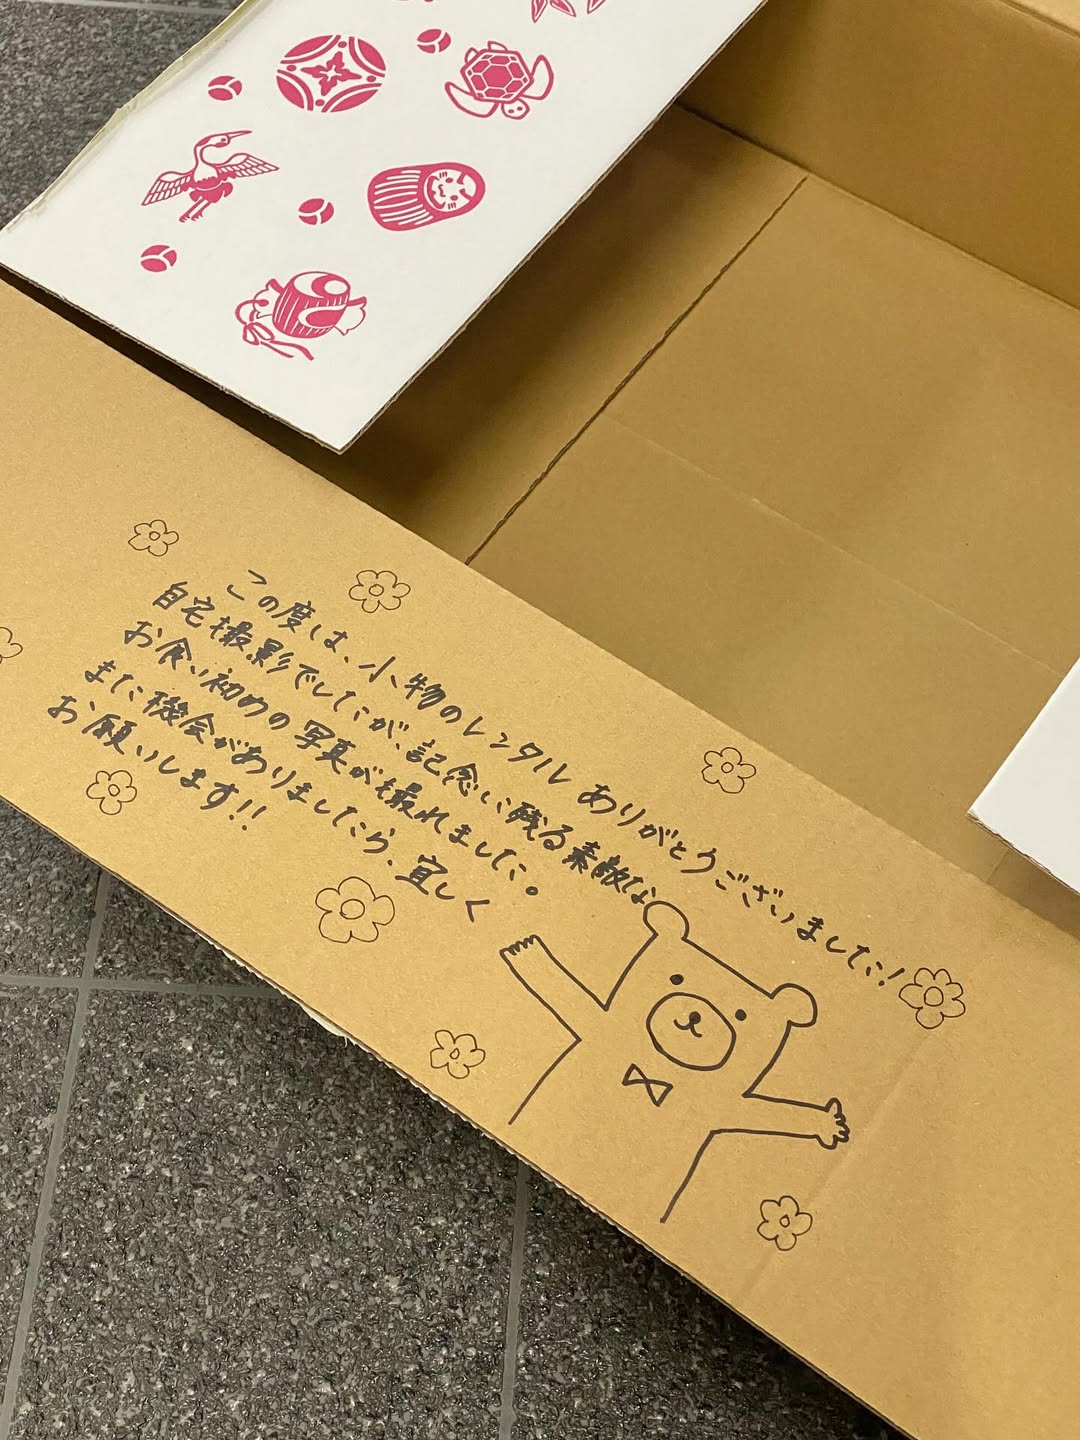 この度は、小物のレンタル ありがとうございました!
自宅撮影でしたが、記念に残る素敵な
お食い初めの写真が撮れました。
また機会がありましたら、宜しく
お願いします!!